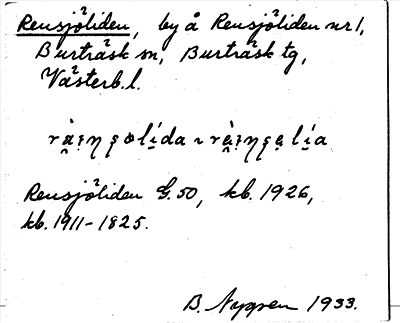 Rensjöliden, by å Rensjöliden nr 1,
Burträsk sn, Burträsk tg,
Västerb. l.
Rensjöliden G. 50, kb. 1926,
kb. 1911-1825.
B. Nygren 1933.